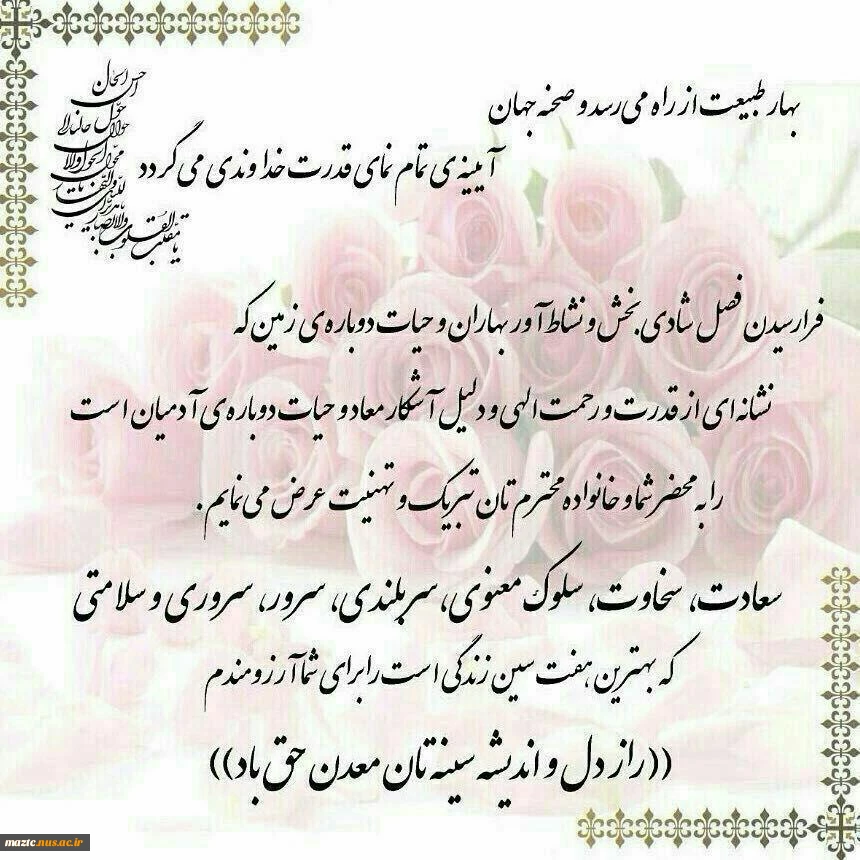 بهار طبیعت از راه می رسد و صحنه جهان
آیینه ی تمام نمای قدرت خداوندی می گردد
یا مقلب القلوب والابصار
یا مدبر اللیل والنهار
یا محول الحول والاحوال
حول حالنا الا
احسن الحال
فرا رسیدن فصل شادی بخش و نشاط آور بهاران و حیات دوباره ی زمین که
نشانه ای از قدرت و رحمت الهی و دلیل آشکار معاد و حیات دوباره ی آدمیان است
را به محضر شما و خانواده محترم تان تبریک و تهنیت عرض می نمایم .
سعادت، سخاوت، سلوک معنوی، سربلندی، سرور، سروری و سلامتی
که بهترین هفت سین زندگی است را برای شما آرزومندم
((راز دل و اندیشه سینه تان معدن حق باد))
maztc.nus.ac.ir